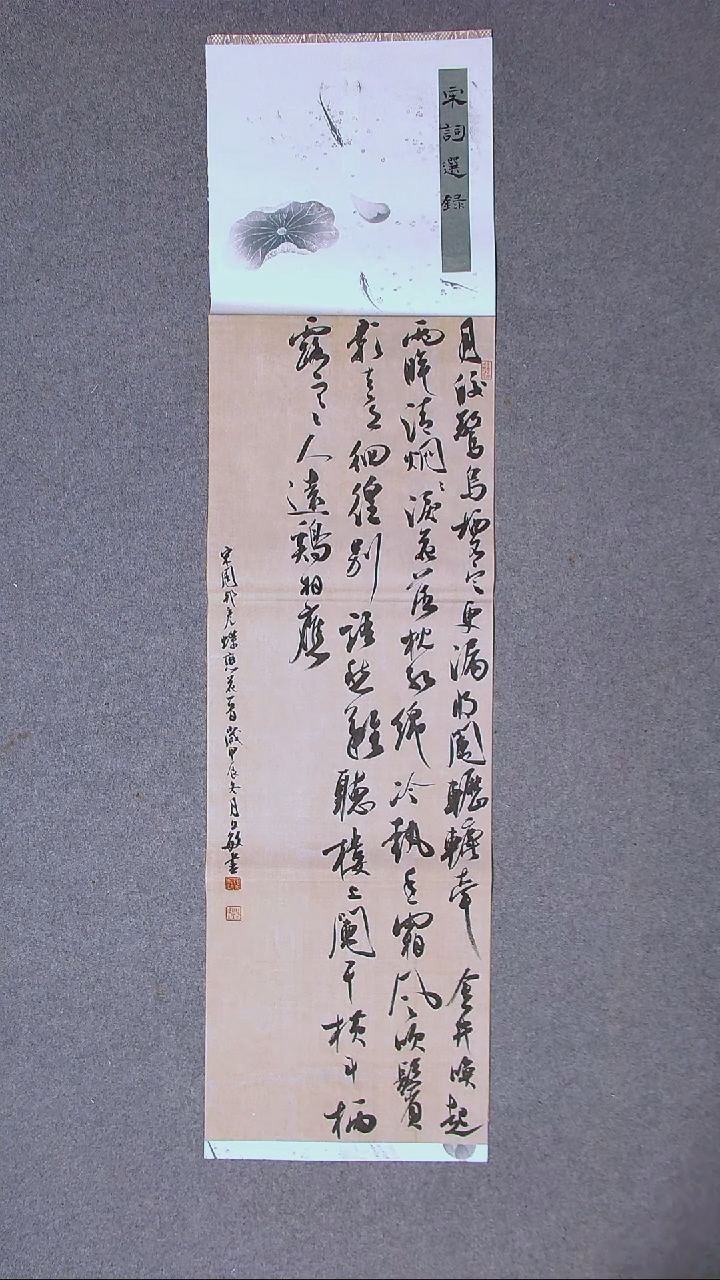 宋詞選錄
月皎驚烏棲不定更漏将闌轣轆牽金井喚起
兩眸清炯炯淚花落枕紅綿冷執手霜風吹鬢
影去意徊徨別語愁難聽樓上闌干横斗柄
露寒人遠鷄相應
宋周邦彥蝶恋花一首歲甲辰冬月敏書